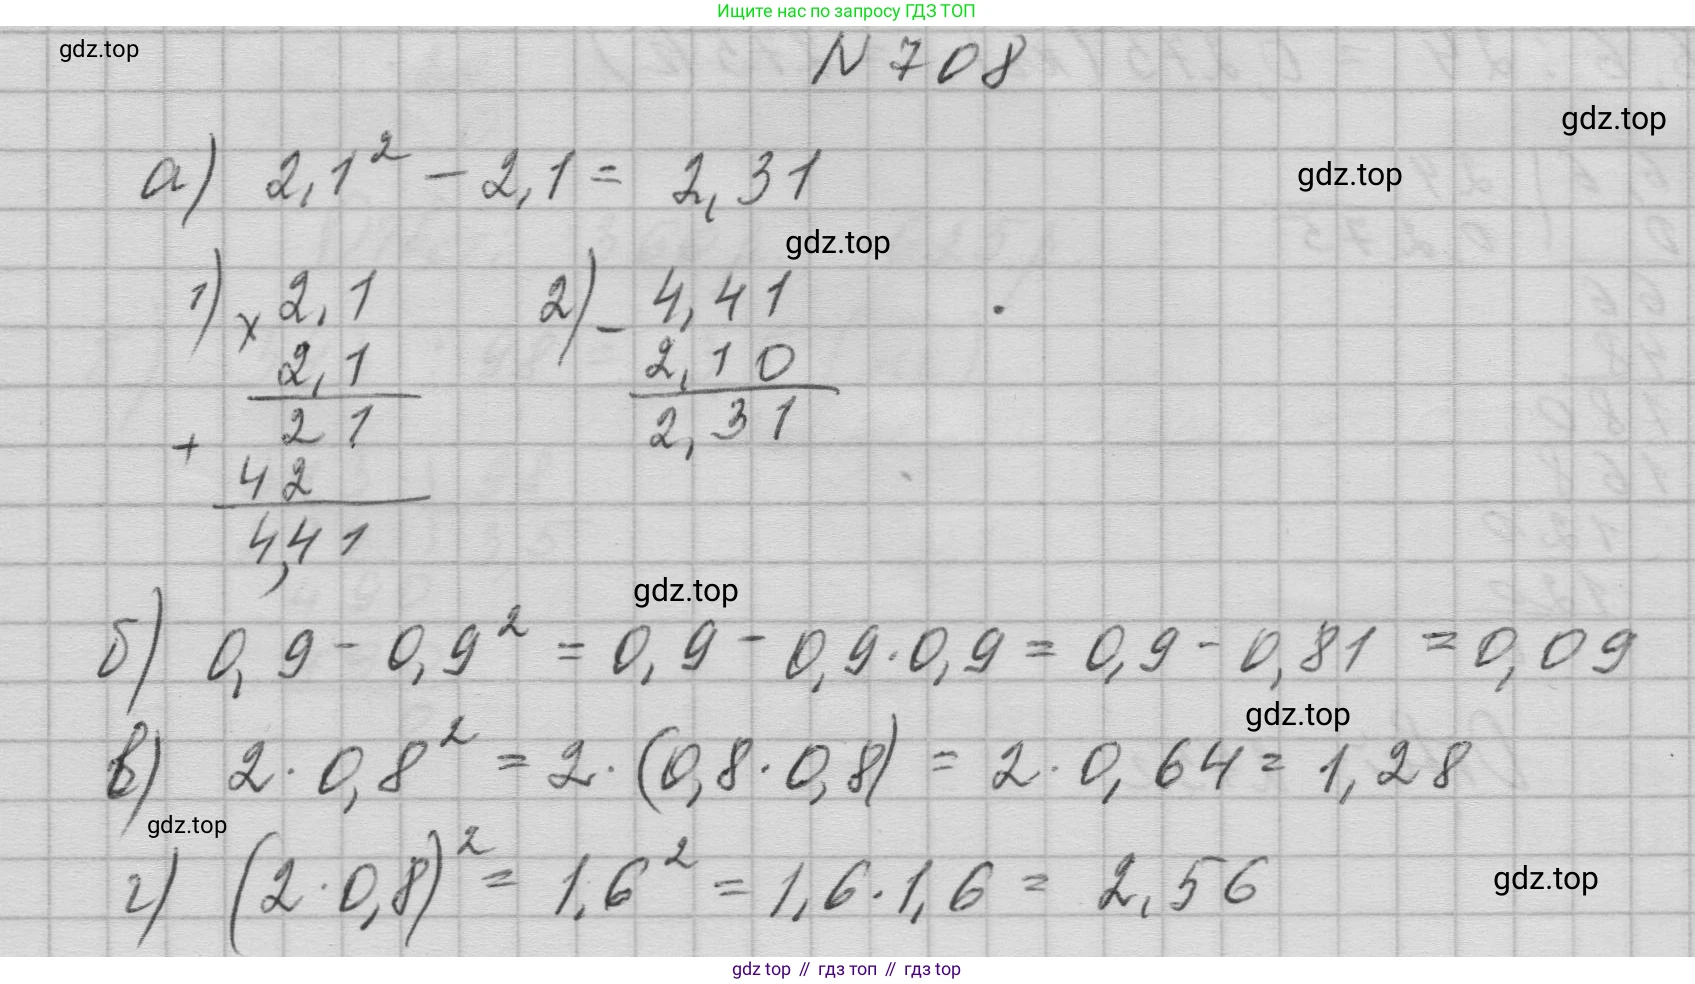 Ищите нас по запросу ГДЗ ТОП
gdz.top
N 708
gdz.top
а) 2,1² - 2,1 = 2,31
gdz.top
gdz.top
1) × 2,1
2,1
+ 21
42
4,41
2) - 4,41
2,10
2,31
gdz.top
б) 0,9 - 0,9² = 0,9 - 0,9·0,9 = 0,9 - 0,81 = 0,09
gdz.top
в) 2·0,8² = 2·(0,8·0,8) = 2·0,64 = 1,28
gdz.top
г) (2·0,8)² = 1,6² = 1,6·1,6 = 2,56
gdz.top
gdz top // гдз топ // гдз top